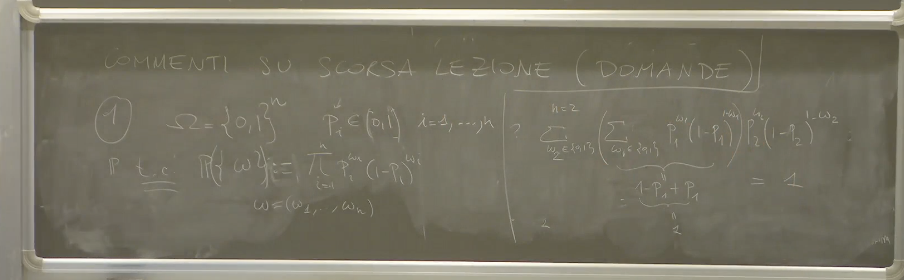 COMMENTI SU SCORSA LEZIONE (DOMANDE)
① Ω = {0,1}^n P_i ∈ [0,1] i=1,...,n
ℙ t.c. ℙ({ω}) := ∏_{i=1}^n P_i^{ω_i} (1-P_i)^{1-ω_i}
ω = (ω_1,...,ω_n)
?
n=2
∑_{ω_2∈{0,1}} (∑_{ω_1∈{0,1}} P_1^{ω_1} (1-P_1)^{1-ω_1}) P_2^{ω_2} (1-P_2)^{1-ω_2}
1-P_1+P_1 = 1
1